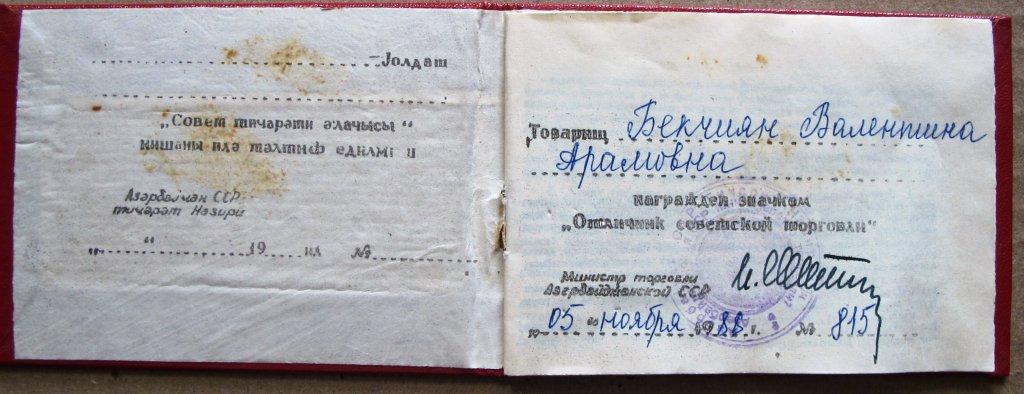 Јолдаш
„Совет тичарәти әлачысы“
нишаны илә тәлтиф едилмишди
Азәрбајҹан ССР
тиҹарәт Назири
„ “ 19 ил №
Товарищ Бекчиян Валентина
Арамовна
награжден значком
„Отличник советской торговли“
Министр торговли
Азербайджанской ССР
„05“ ноября 1988 г. № 815